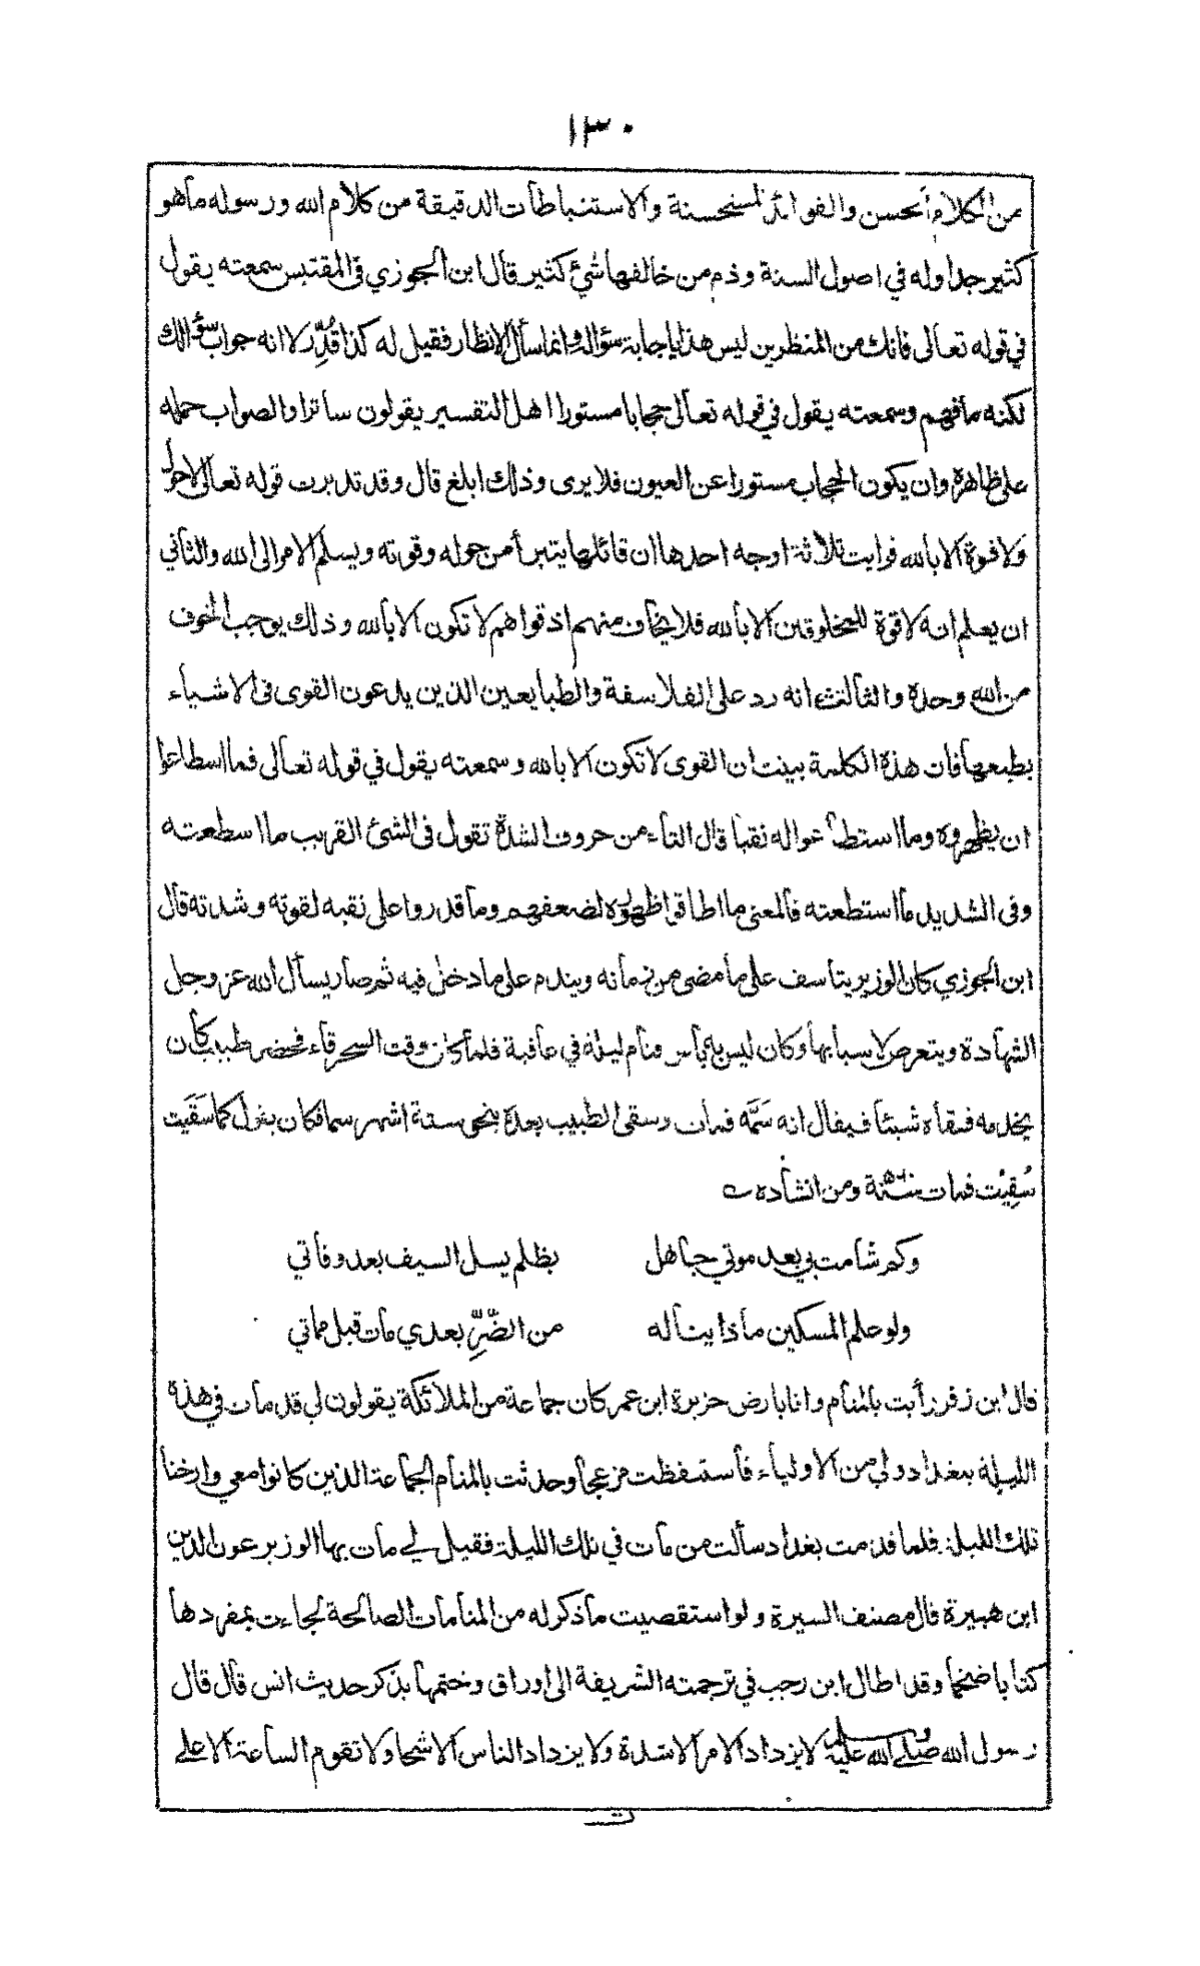 ١٣٠
من الكلام الحسن والفوائد المستحسنة والاستنباطات الدقيقة من كلام الله ورسوله ما هو
كثير جدا وله في اصول السنة وذم من خالفها شئ كثير قال ابن الجوزي في المقتبس سمعته يقول
في قوله تعالى فانك من المنظرين ليس هذا باجابة سؤاله وانما سأل الانظار فقيل له كذا قُدِّر لا انه جواب سؤالك
لكنه ما فهم وسمعته يقول في قوله تعالى حجابا مستورا اهل التفسير يقولون ساترا والصواب حمله
على ظاهره وان يكون الحجاب مستورا عن العيون فلا يرى وذلك ابلغ قال وقد تدبرت قوله تعالى لا حول
ولا قوة الا بالله فرايت ثلاثة اوجه احدها ان قائلها يتبرأ من حوله وقوته ويسلم الامر الى الله والثاني
ان يعلم انه لا قوة للمخلوقين الا بالله فلا يخاف منهم اذ قواهم لا تكون الا بالله وذلك يوجب الخوف
من الله وحده والثالث انه رد على الفلاسفة والطبايعين الذين يدعون القوى في الاشياء
بطبعها فان هذه الكلمة بينت ان القوى لا تكون الا بالله وسمعته يقول في قوله تعالى فما اسطاعوا
ان يظهروه وما استطاعوا له نقبا قال التاء من حروف الشدة تقول في الشئ القريب ما اسطعته
وفي الشديد ما استطعته فالمعنى ما اطاقوا ظهوره لضعفهم وما قدروا على نقبه لقوته وشدته قال
ابن الجوزي كان الوزير يتاسف على ما مضى من زمانه ويندم على ما دخل فيه ثم صار يسأل الله عز وجل
الشهادة ويتعرض لاسبابها وكان ليس به بأس فنام ليلة في عافية فلما كان وقت السحر قاء فحضر طبيب كان
يخدمه فسقاه شيئا فيقال انه سَمَّه فمات وسقى الطبيب بعده بنحو ستة اشهر سما فكان يقول كما سَقَيت
سُقِيْت فمات سنة ومن انشاده
وكم شامت بي بعد موتي جاهل بظلم يسل السيف بعد وفاتي
ولو علم المسكين ماذا يناله من الضُّرِّ بعدي مات قبل مماتي
قال ابن زفر رأيت بالمنام وانا بارض جزيرة ابن عمر كان جماعة من الملائكة يقولون لي قد مات في هذه
الليلة ببغداد ولي من الاولياء فاستيقظت مزعجا وحدثت بالمنام الجماعة الذين كانوا معي وارخنا
تلك الليلة فلما قدمت بغداد سألت من مات في تلك الليلة فقيل لي مات بها الوزير عون الدين
ابن هبيرة قال مصنف السيرة ولو استقصيت ما ذكر له من المنامات الصالحة لجاءت بمفردها
كتابا ضخما وقد اطال ابن رجب في ترجمته الشريفة الى اوراق وختمها بذكر حديث انس قال قال
رسول الله صلى الله عليه وسلم لا يزداد الامر الا شدة ولا يزداد الناس الا شحا ولا تقوم الساعة الا على